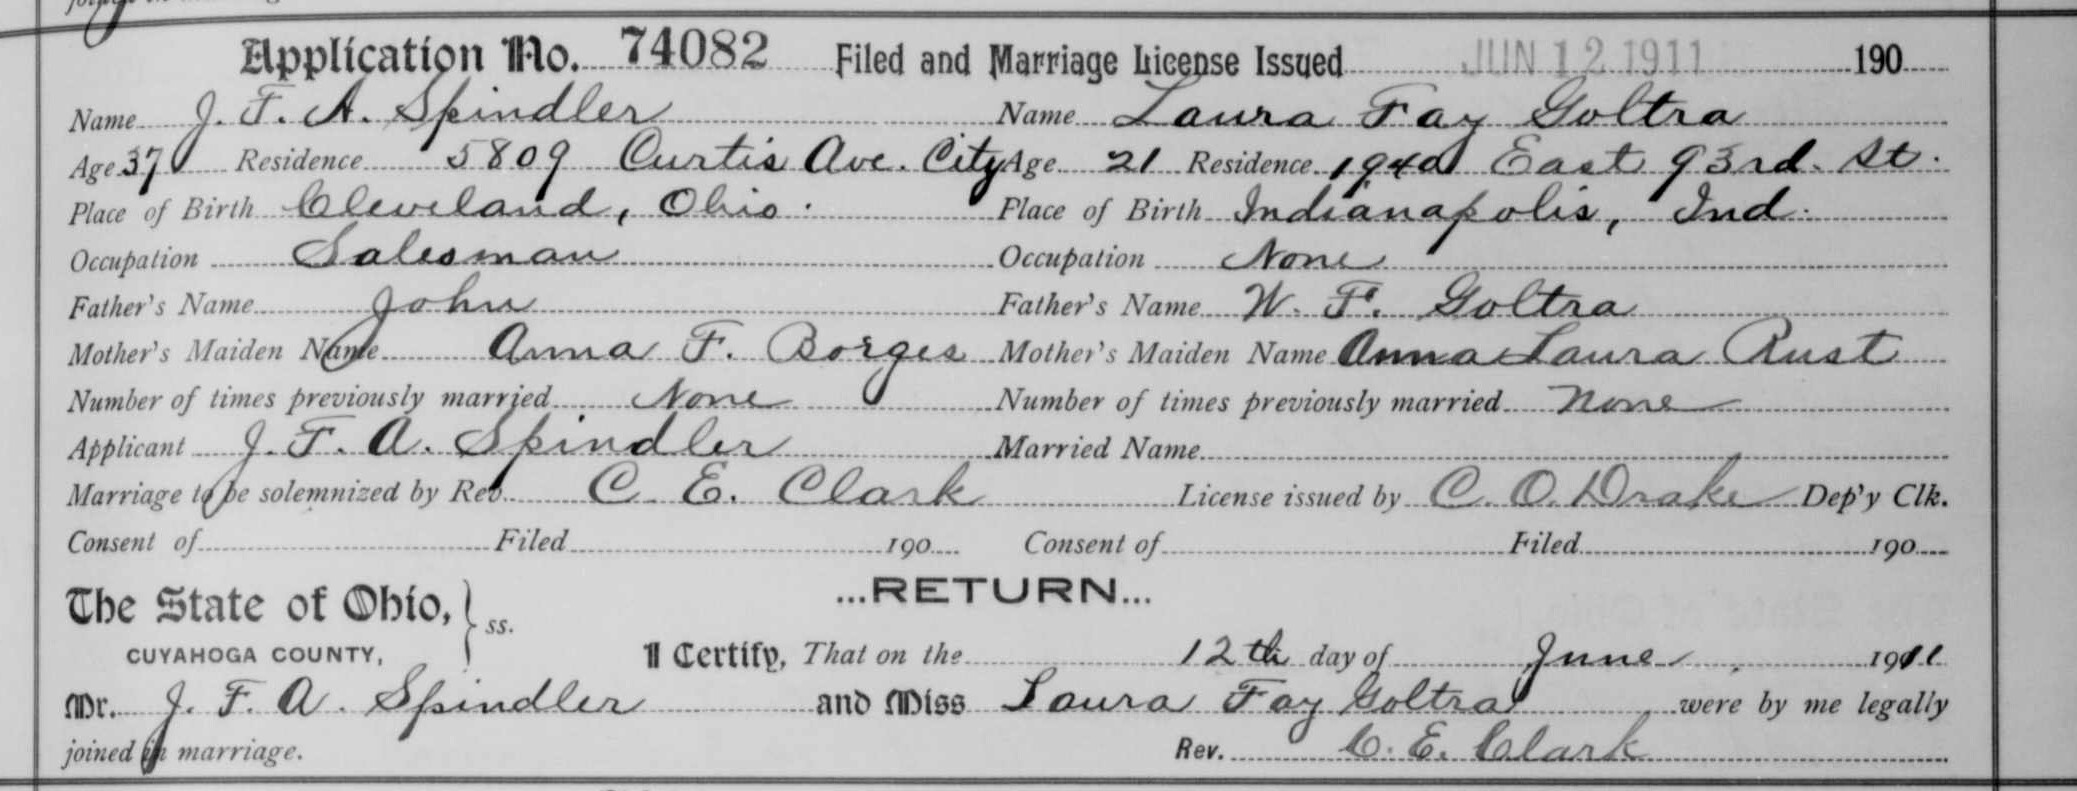 Application No. 74082 Filed and Marriage License Issued JUN 12 1911 190
Name J. F. A. Spindler Name Laura Fay Goltra
Age 37 Residence 5809 Curtis Ave. City Age 21 Residence 1940 East 93rd. St.
Place of Birth Cleveland, Ohio. Place of Birth Indianapolis, Ind.
Occupation Salesman Occupation None
Father's Name John Father's Name W. F. Goltra
Mother's Maiden Name Anna F. Borges Mother's Maiden Name Anna Laura Rust
Number of times previously married None Number of times previously married None
Applicant J. F. A. Spindler Married Name
Marriage to be solemnized by Rev. C. E. Clark License issued by C. O. Drake Dep'y Clk.
Consent of Filed 190 Consent of Filed 190
...RETURN...
The State of Ohio, } ss.
CUYAHOGA COUNTY, I Certify, That on the 12th day of June 1911
Mr. J. F. A. Spindler and Miss Laura Fay Goltra were by me legally
joined in marriage. Rev. C. E. Clark